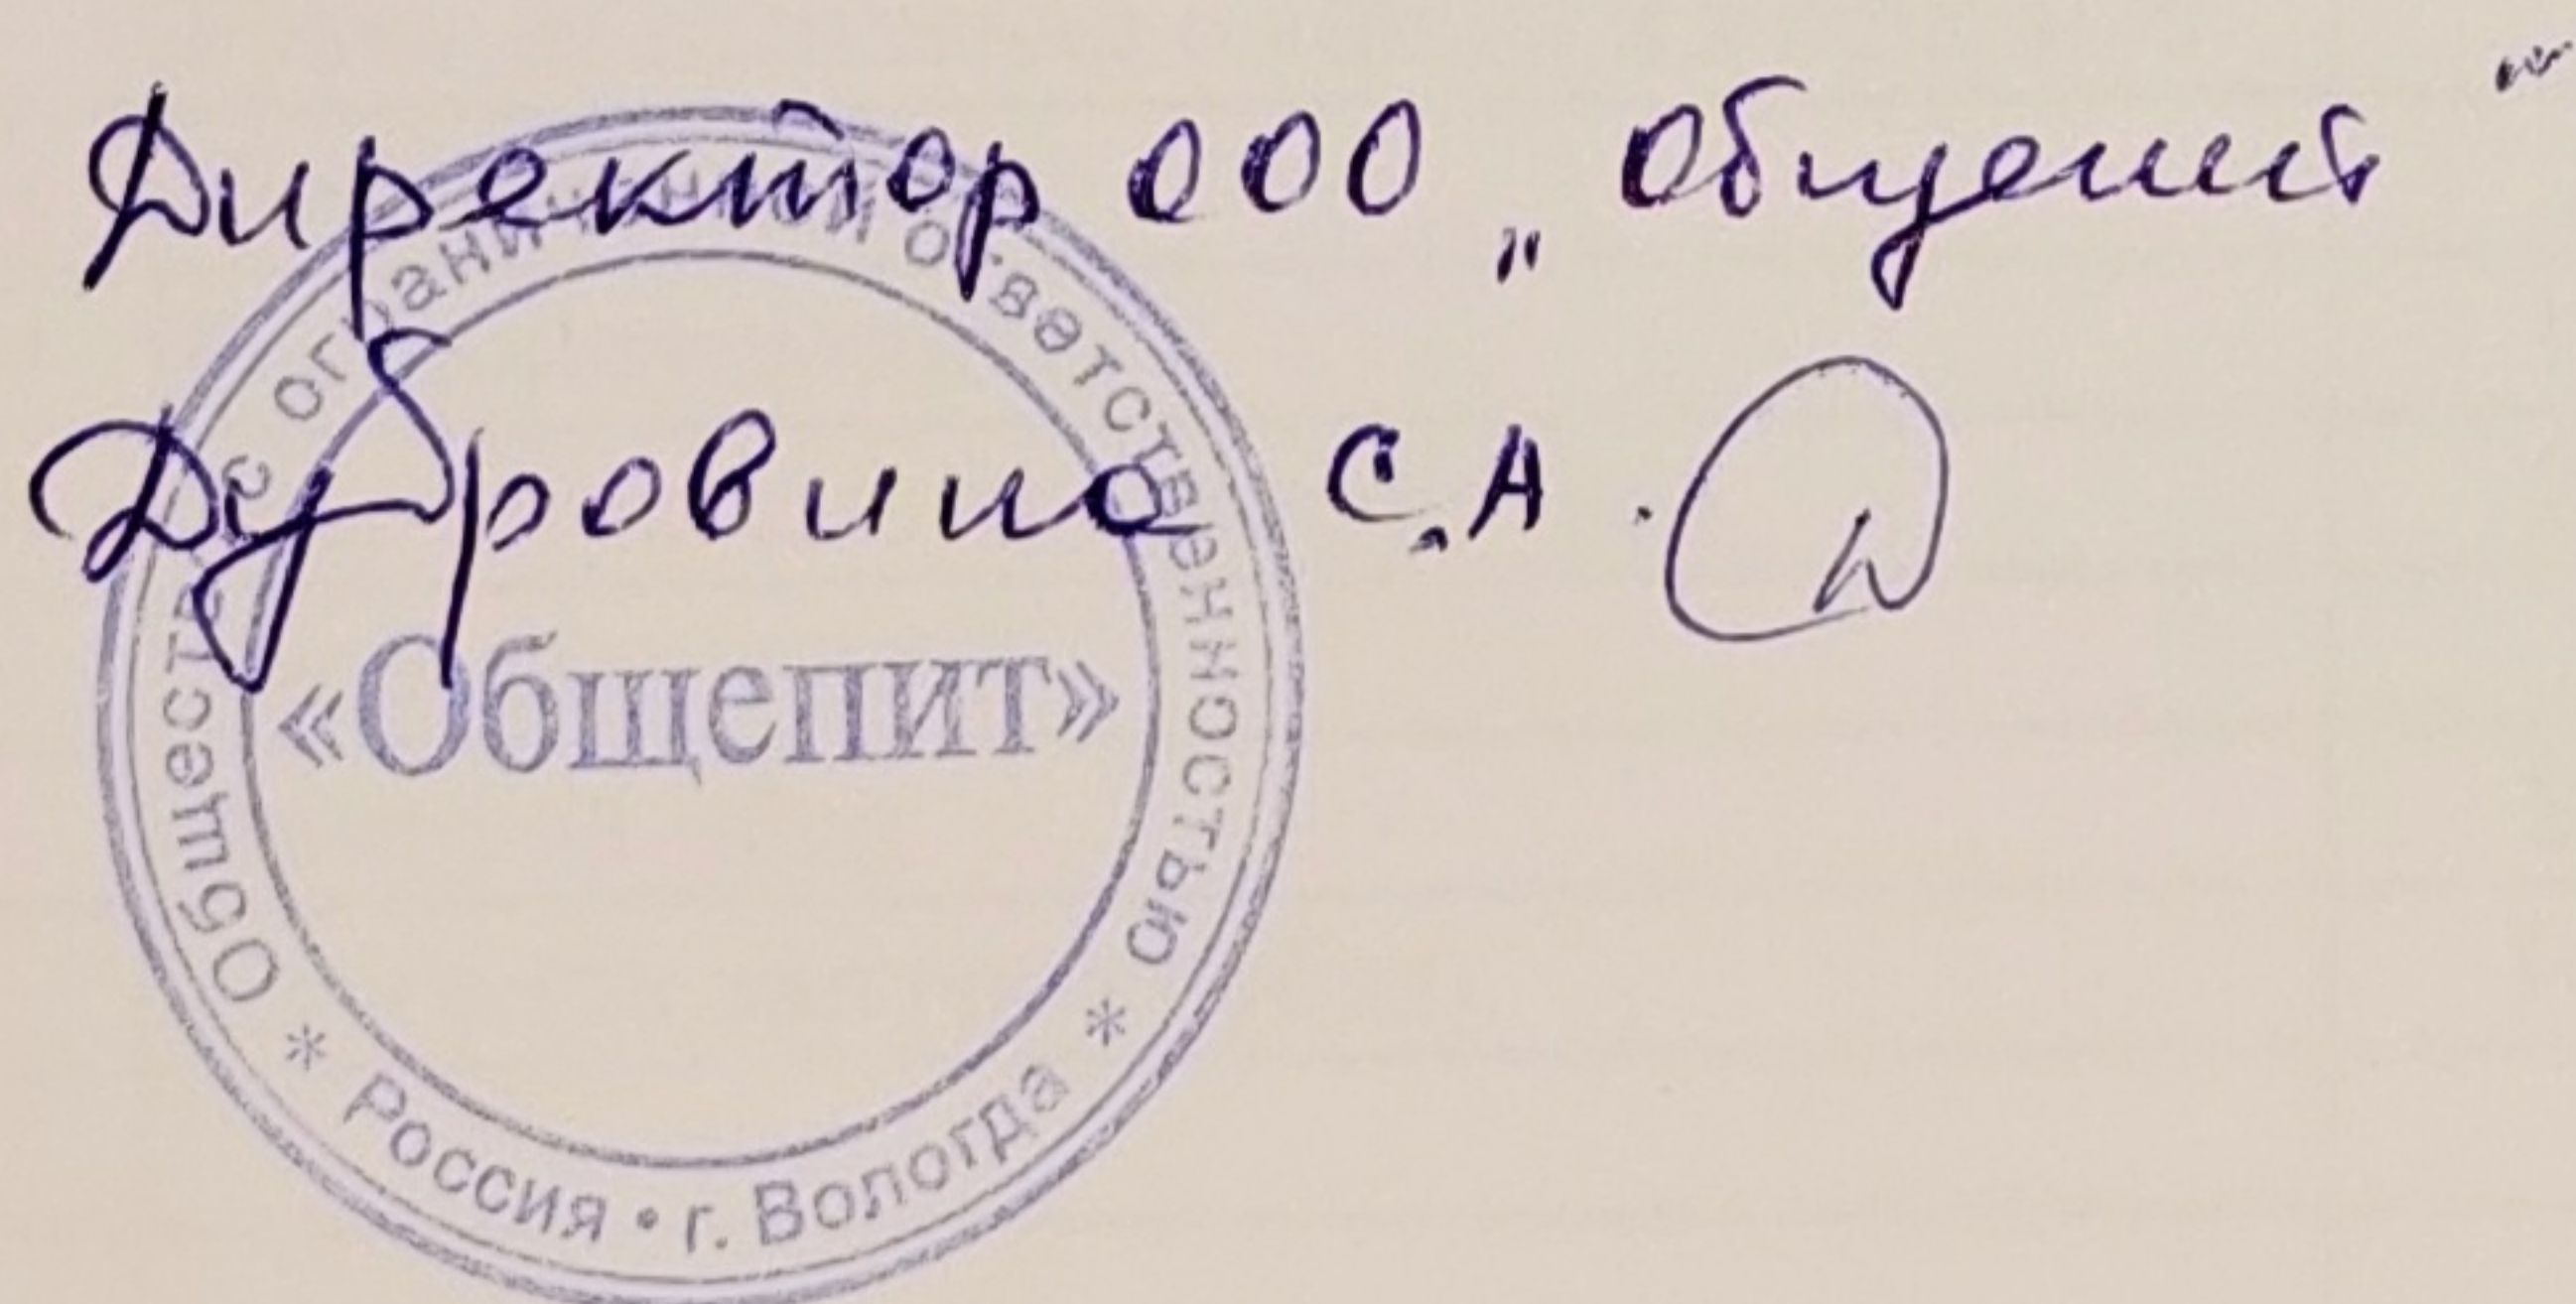 Директор ООО „Общепит"
Дубровина С.А.
Общество с ограниченной ответственностью
«Общепит»
* Россия • г. Вологда *